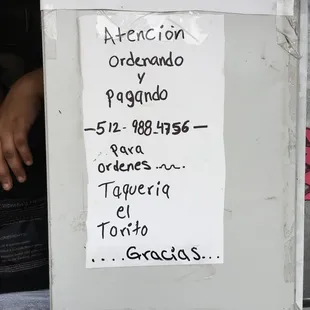 Atención
ordenando
y
pagando
-512-988-4756-
para
ordenes...~
Taqueria
el
Torito
....Gracias...